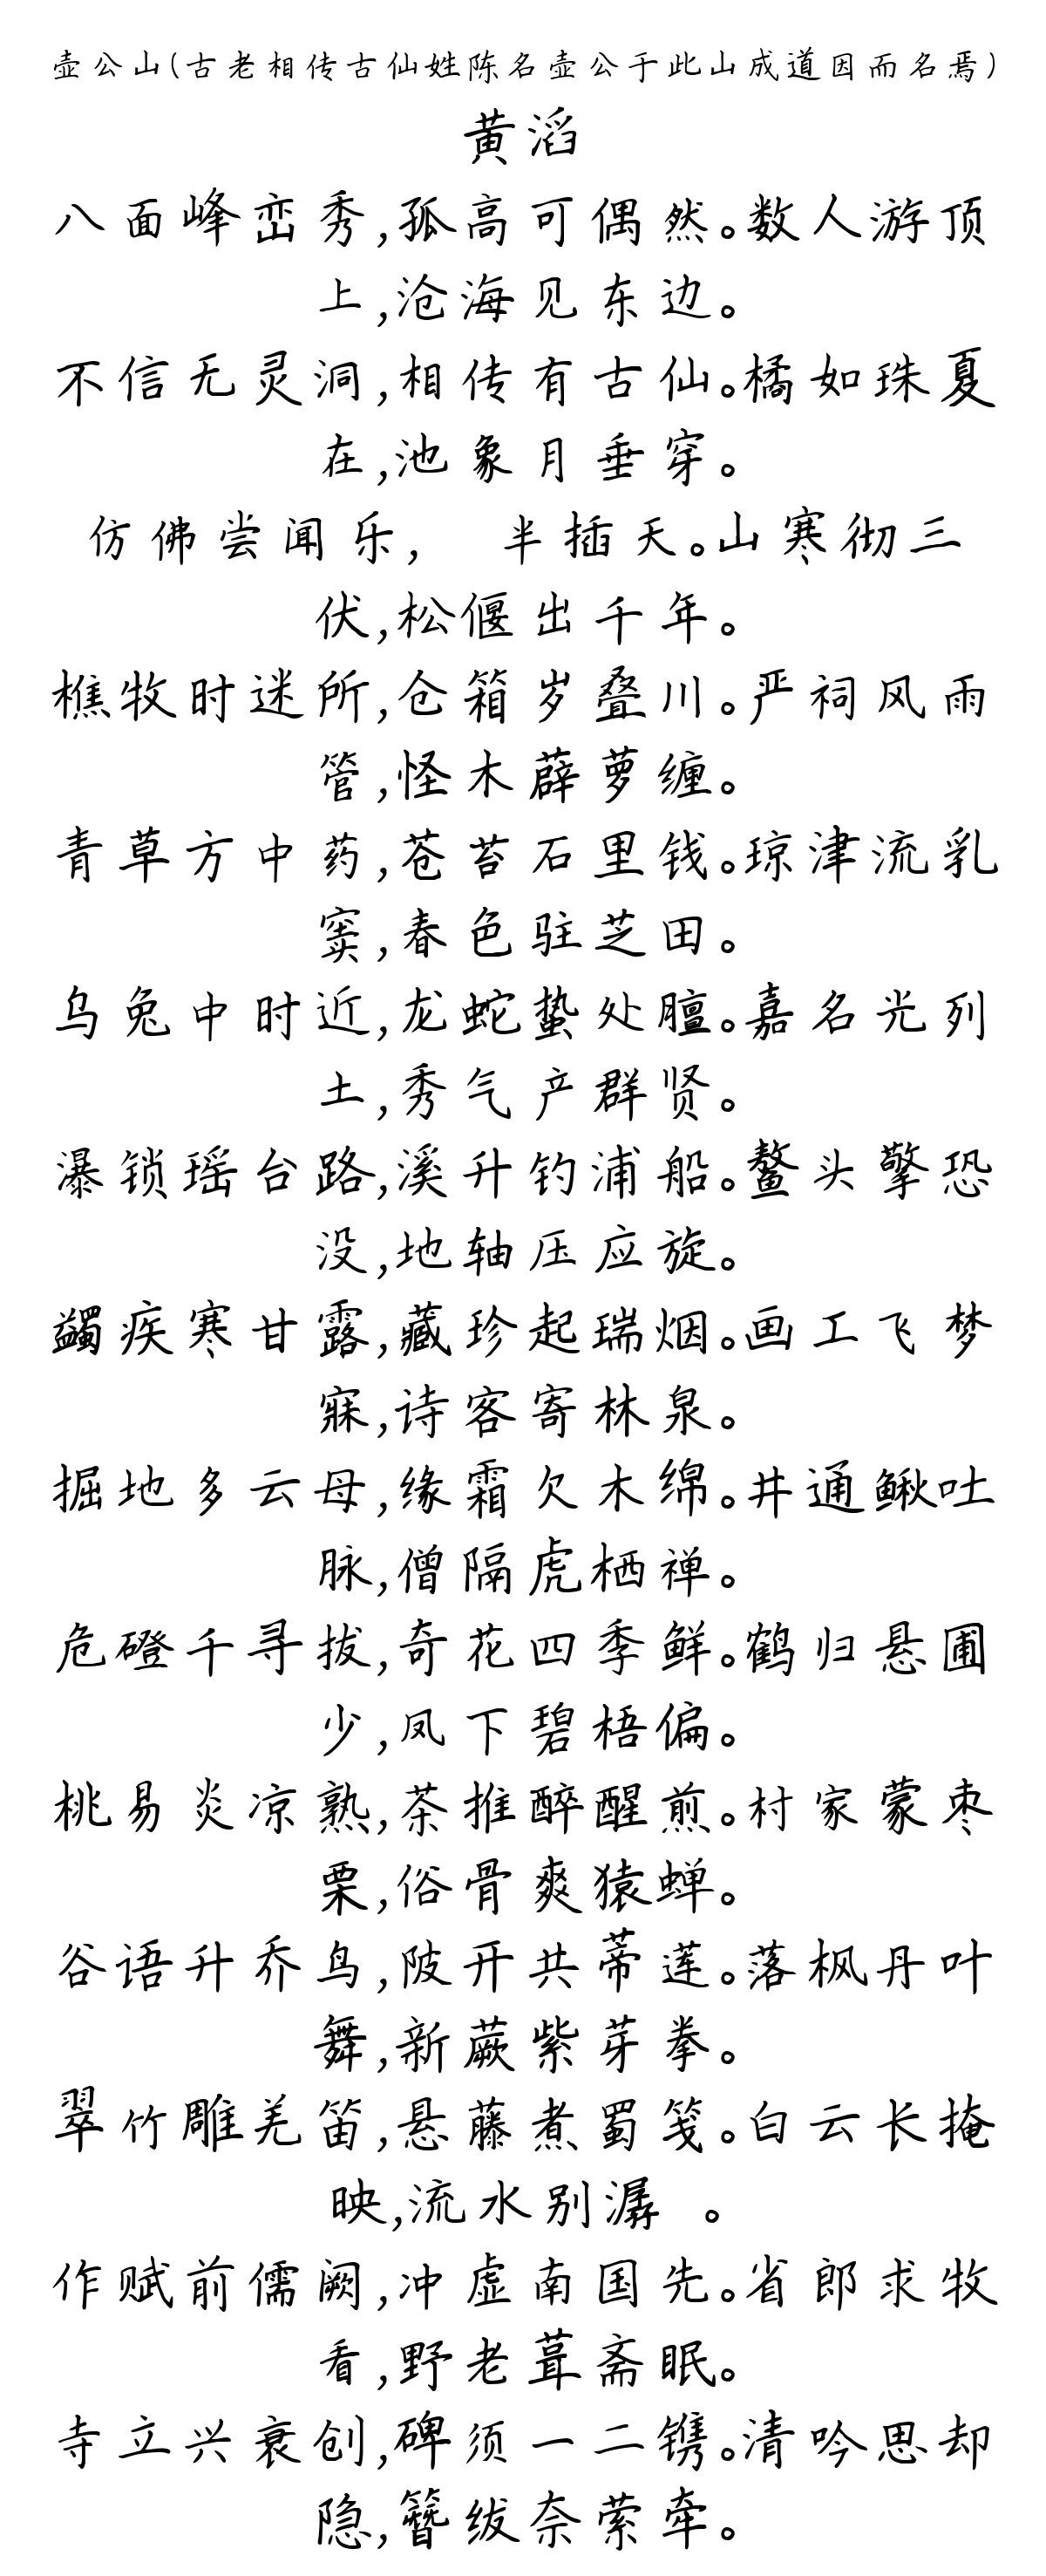 壶公山(古老相传古仙姓陈名壶公于此山成道因而名焉)
黄滔
八面峰峦秀,孤高可偶然。数人游顶
上,沧海见东边。
不信无灵洞,相传有古仙。橘如珠夏
在,池象月垂穿。
仿佛尝闻乐, 半插天。山寒彻三
伏,松偃出千年。
樵牧时迷所,仓箱岁叠川。严祠风雨
管,怪木薜萝缠。
青草方中药,苍苔石里钱。琼津流乳
窦,春色驻芝田。
乌兔中时近,龙蛇蛰处膻。嘉名光列
土,秀气产群贤。
瀑锁瑶台路,溪升钓浦船。鳌头擎恐
没,地轴压应旋。
蠲疾寒甘露,藏珍起瑞烟。画工飞梦
寐,诗客寄林泉。
掘地多云母,缘霜欠木绵。井通鳅吐
脉,僧隔虎栖禅。
危磴千寻拔,奇花四季鲜。鹤归悬圃
少,凤下碧梧偏。
桃易炎凉熟,茶推醉醒煎。村家蒙枣
栗,俗骨爽猿蝉。
谷语升乔鸟,陂开共蒂莲。落枫丹叶
舞,新蕨紫芽拳。
翠竹雕羌笛,悬藤煮蜀笺。白云长掩
映,流水别潺 。
作赋前儒阙,冲虚南国先。省郎求牧
看,野老葺斋眠。
寺立兴衰创,碑须一二镌。清吟思却
隐,簪绂奈萦牵。